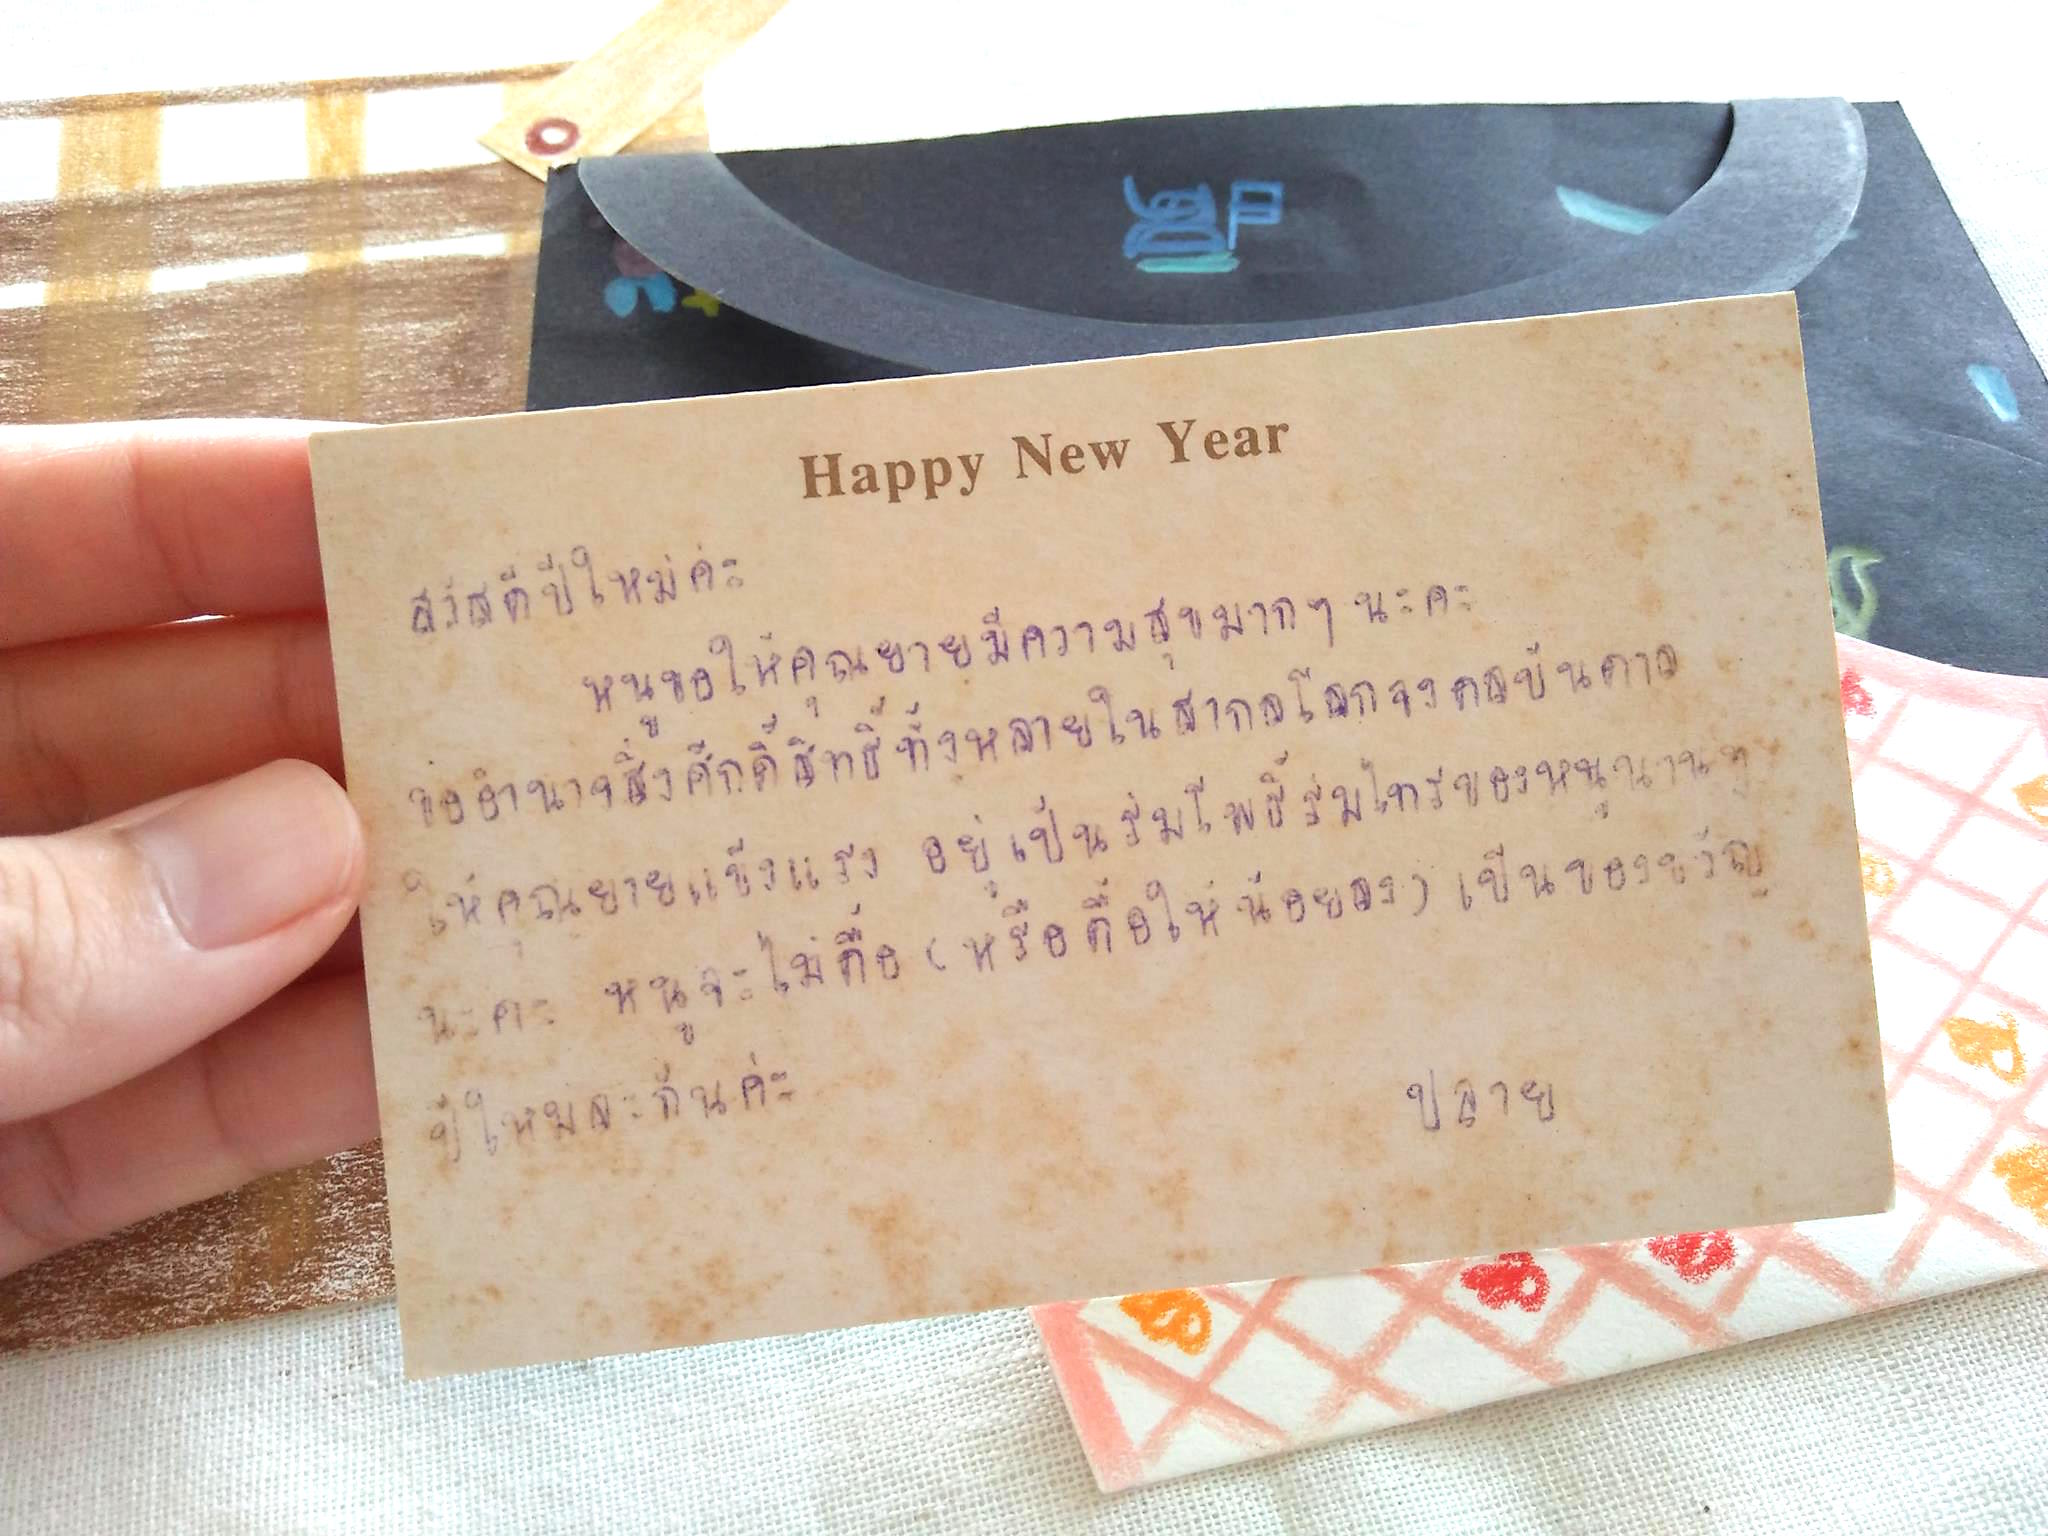 Happy New Year
สวัสดีปีใหม่ค่ะ
หนูขอให้คุณยายมีความสุขมากๆ นะคะ
ขออำนาจสิ่งศักดิ์สิทธิ์ทั้งหลายในสากลโลกจงดลบันดาล
ให้คุณยายแข็งแรง อยู่เป็นร่มโพธิ์ร่มไทรของหนูนานๆ
นะคะ หนูจะไม่ดื้อ (หรือดื้อให้น้อยลง) เป็นของขวัญ
ปีใหม่ละกันค่ะ
ปลาย